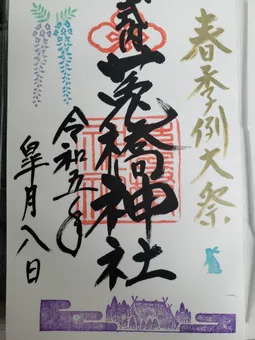 春季例大祭
式内
莵橋神社
令和五年
皐月八日